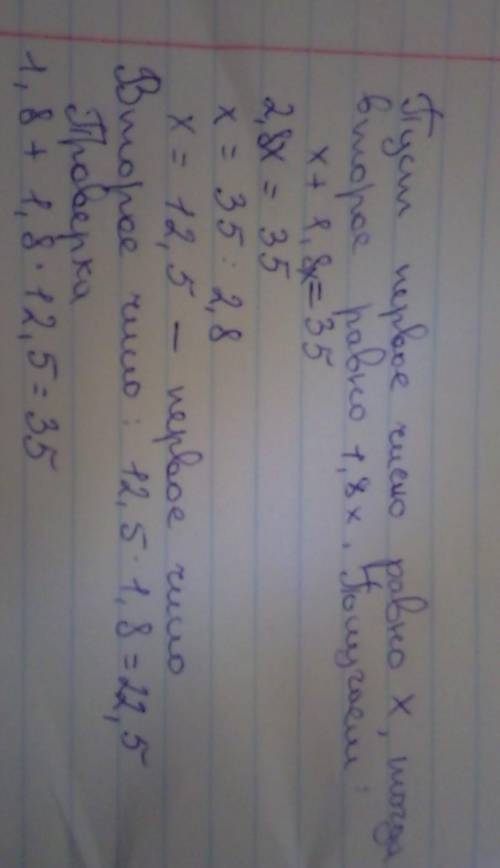 Пуст первое число равно х, тогда
второе равно 1,8х. Получаем:
х + 1,8х = 35
2,8х = 35
х = 35 : 2,8
х = 12,5 — первое число
Второе число: 12,5 · 1,8 = 22,5
Проверка
1,8 + 1,8 · 12,5 = 35